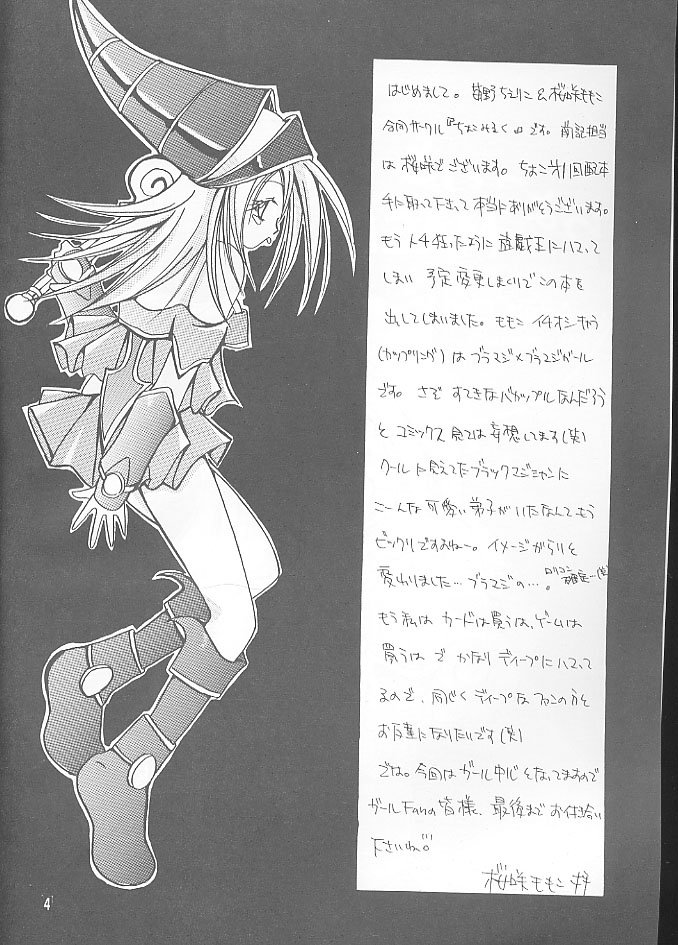 はじめまして。姫野ちえりこ&桜咲ももこ
合同サークル『ちょこみるく』です。前記担当
は桜咲でございます。ちょこオ1回配本
手に取って下さって本当にありがとうございます。
もう人4狂ったように遊戯王にハマって
しまい 予定変更しまくりでこの本を
出してしまいました。ももこ イチオシキャラ
(カップリング)はブラマジ×ブラマジガール
です。さぞ すてきなバカップルなんだろう
と コミックス 見ては妄想してます(笑)
クールに見えてたブラックマジシャンに
こーんな可愛い弟子がいたなんてもう
ビックリですよねー。イメージがらりと
変わりました…ブラマジの…。ロリコン確定…(笑)
もう私は カードは買うは、ゲームは
買うは で かなり ディープにハマって
るので、同じく ディープな ファンの方と
お友達になりたいです(笑)
では。今回はガール中心となってますので
ガールFanの皆様、最後まで お付き合い
下さいね。
桜咲ももこ 拝
4